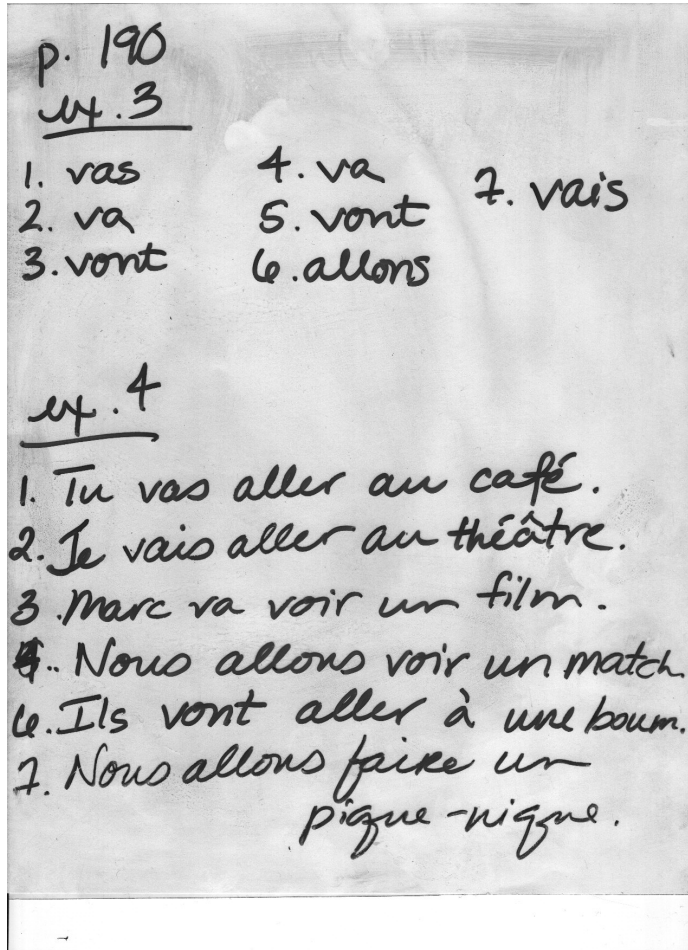 p. 190
ex. 3
1. vas 4. va 7. vais
2. va 5. vont
3. vont 6. allons
ex. 4
1. Tu vas aller au café.
2. Je vais aller au théâtre.
3. Marc va voir un film.
Nous allons voir un match.
6. Ils vont aller à une boum.
7. Nous allons faire un
pique-nique.